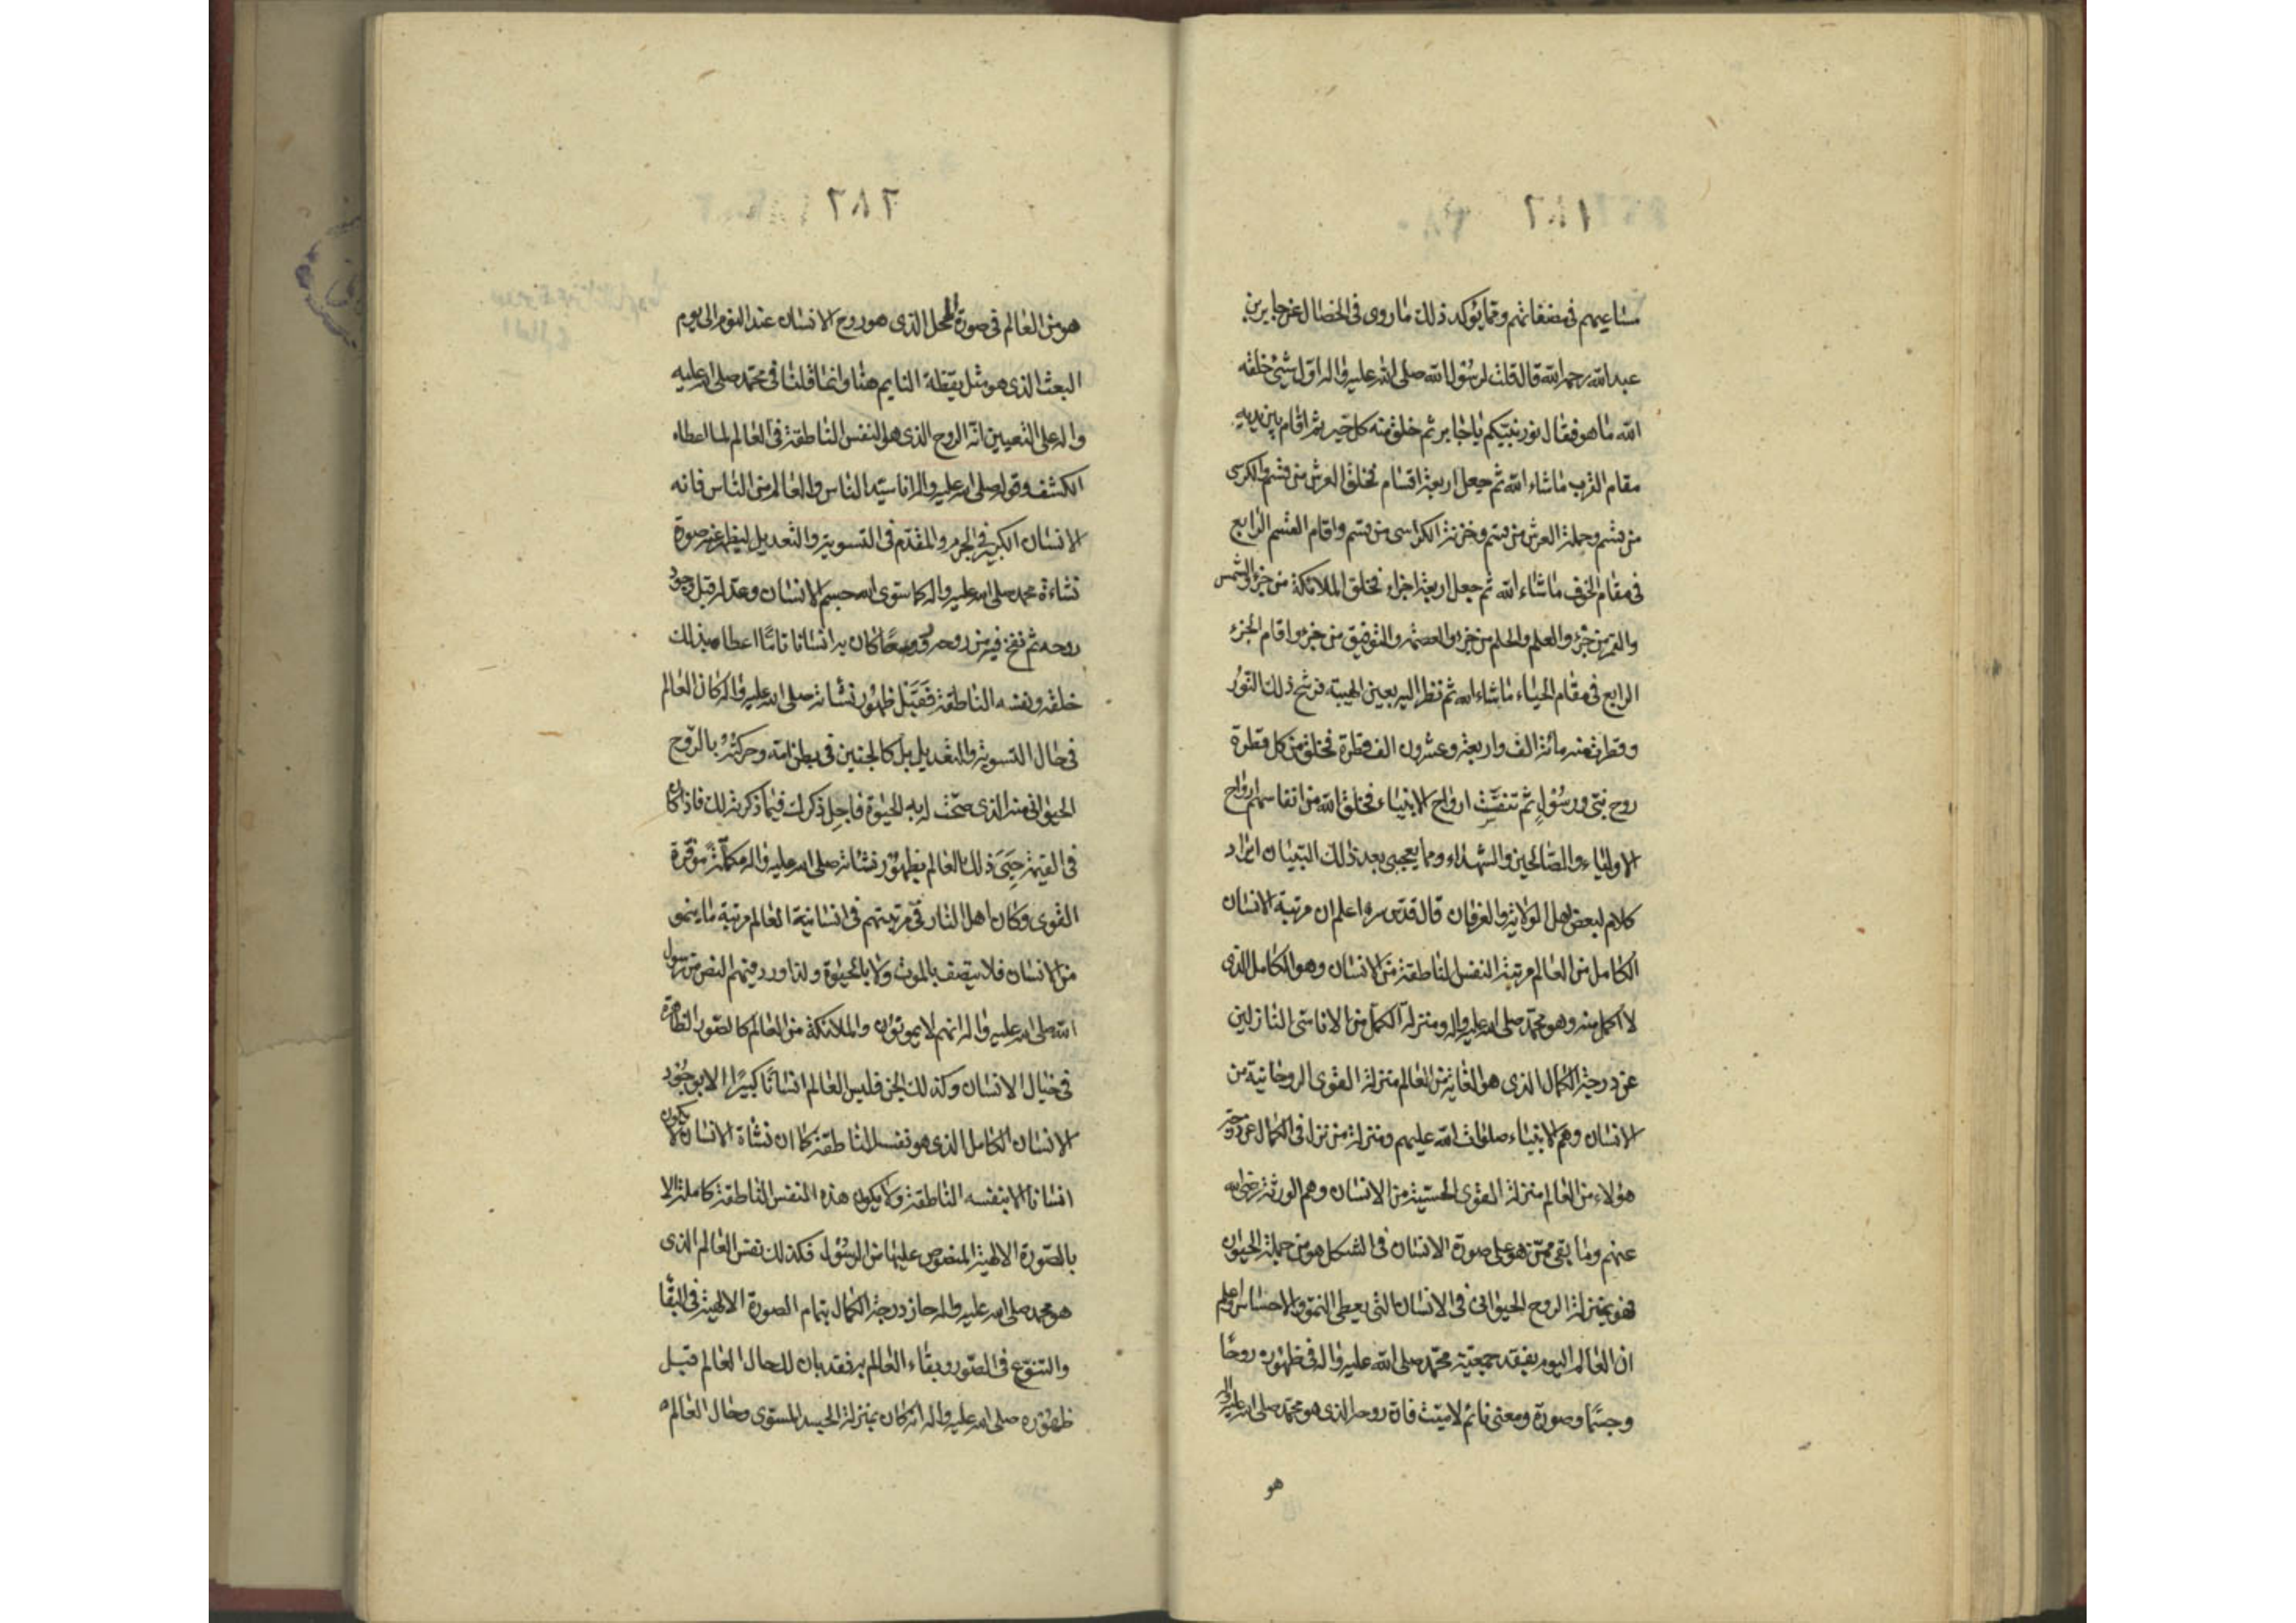 مشايخهم فى مصنفاتهم ومما يؤكد ذلك ما روى فى الخصال عن جابر بن
عبد الله رحمه الله قال قلت لرسول الله صلى الله عليه واله اول شئ خلقه
الله ما هو فقال نور نبيكم يا جابر ثم خلق منه كل خير ثم اقام بين يديه
مقام القرب ما شاء الله ثم جعل اربعة اقسام فخلق العرش من قسم والكرسى
من قسم وحملة العرش من قسم وخزنة الكراسى من قسم واقام القسم الرابع
فى مقام الخوف ماشاء الله ثم جعل اربعة اجزاء فخلق الملائكة من جزء والشمس
والقمر من جزء والعلم والحلم من جزء والعصمة والتوفيق من جزء واقام الجزء
الرابع فى مقام الحياء ما شاء الله ثم نظر اليه بعين الهيبة فرشح ذلك النور
وقطرت منه مائة الف واربعة وعشرون الف قطرة فخلق من كل قطرة
روح نبى ورسول ثم تنفست ارواح الانبياء فخلق الله من انفاسهم ارواح
الاولياء والصالحين والشهداء ومما يعجبنى بعد ذلك التبيان ايراد
كلام لبعض اهل الولاية والعرفان قال قدس سره اعلم ان مرتبة الانسان
الكامل من العالم مرتبة النفس الناطقة من الانسان وهو الكامل الذى
لا اكمل منه وهو محمد صلى الله عليه واله ومنزلة الكمل من الاناسى النازلين
عن درجة الكمال الذى هو الغاية من العالم منزلة القوى الروحانية من
الانسان وهم الانبياء صلوات الله عليهم ومنزلة من نزل فى الكمال عن درجة
هؤلاء من العالم منزلة القوى الحسية من الانسان وهم الورثة رضى الله
عنهم وما بقى ممن هو على صورة الانسان فى الشكل هو من جملة الحيوان
فهو بمنزلة الروح الحيوانى فى الانسان التى يعطى النمو والاحساس واعلم
ان العالم اليوم بفقد جمعية محمد صلى الله عليه واله فى ظهوره روحا
وجسما وصورة ومعنى نائم لا ميت فان روحه الذى هو محمد صلى الله عليه واله
هو
٦٨٦
هو من العالم فى صورة المحل الذى هو روح الانسان عند النوم الى يوم
البعث الذى هو مثل يقظة النايم هنا وانما قلنا فى محمد صلى الله عليه
واله على التعيين انه الروح الذى هو النفس الناطقة فى العالم لما اعطاه
الكشف وقوله صلى الله عليه واله انا سيد الناس والعالم من الناس فانه
الانسان الكبير فى الجرم والمقدم فى التسوية والتعديل ليظهر عنه صورة
نشاءة محمد صلى الله عليه واله كما سوى الله جسم الانسان وعدله قبل وجود
روحه ثم نفخ فيه من روحه روحا كان به انسانا تاما اعطاه بذلك
خلقه ونفسه الناطقة فقبل ظهور نشأته صلى الله عليه واله كان العالم
فى حال التسوية والتعديل بل كالجنين فى بطن امه وحركته بالروح
الحيوانى منه الذى صحت له به الحيوة فاجل ذكرك فيما ذكرته لك فاذا كان
فى القيمة حيى ذلك العالم بظهور نشاته صلى الله عليه واله مكملة موفرة
القوى وكان اهل النار فى مرتبتهم فى انسانية العالم مرتبة ما ينمو
من الانسان فلا يتصف بالموت ولا بالحيوة ولذا ورد فيهم النص من رسول
الله صلى الله عليه واله انهم لا يموتون والملائكة من العالم كالصور الظاهرة
فى خيال الانسان وكذلك الجن فليس العالم انسانا كبيرا الا بوجود
الانسان الكامل الذى هو نفسه الناطقة كما ان نشاة الانسان لا يكون
انسانا الا بنفسه الناطقة ولا يكون هذه النفس الناطقة كاملة الا
بالصورة الالهية المنصوص عليها من الرسول فكذلك نفس العالم الذى
هو محمد صلى الله عليه واله حاز درجة الكمال بتمام الصورة الالهية فى البقا
والتنوع فى الصور وبقاء العالم به فقد بان لك حال العالم قبل
ظهوره صلى الله عليه واله انه كان بمنزلة الجسد المسوى وحال العالم